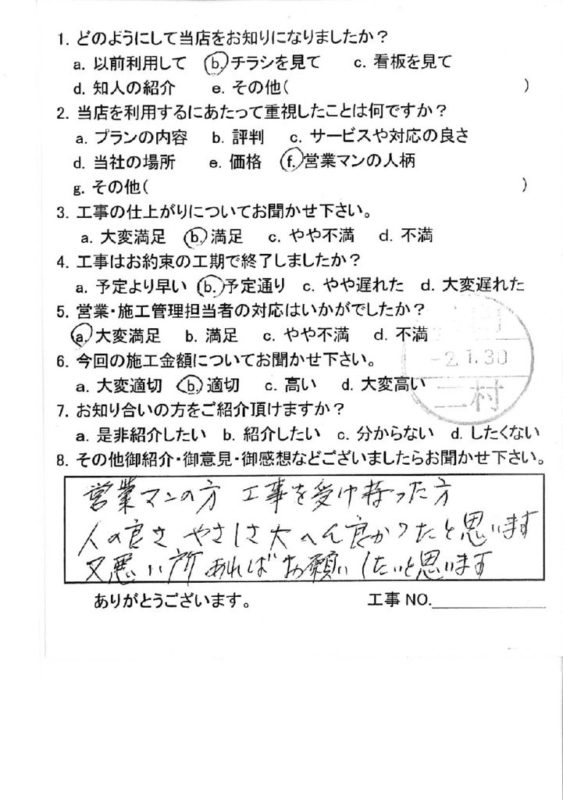 1. どのようにして当店をお知りになりましたか？
a. 以前利用して b. チラシを見て c. 看板を見て
d. 知人の紹介 e. その他( )
2. 当店を利用するにあたって重視したことは何ですか？
a. プランの内容 b. 評判 c. サービスや対応の良さ
d. 当社の場所 e. 価格 f. 営業マンの人柄
g. その他( )
3. 工事の仕上がりについてお聞かせ下さい。
a. 大変満足 b. 満足 c. やや不満 d. 不満
4. 工事はお約束の工期で終了しましたか？
a. 予定より早い b. 予定通り c. やや遅れた d. 大変遅れた
5. 営業・施工管理担当者の対応はいかがでしたか？
a. 大変満足 b. 満足 c. やや不満 d. 不満
6. 今回の施工金額についてお聞かせ下さい。
-2.1.30
a. 大変適切 b. 適切 c. 高い d. 大変高い
二村
7. お知り合いの方をご紹介頂けますか？
a. 是非紹介したい b. 紹介したい c. 分からない d. したくない
8. その他御紹介・御意見・御感想などございましたらお聞かせ下さい。
営業マンの方 工事を受け持った方
人の良さ やさしさ大へん良かったと思います
又悪い所あればお願いしたいと思います
ありがとうございます。 工事 NO.